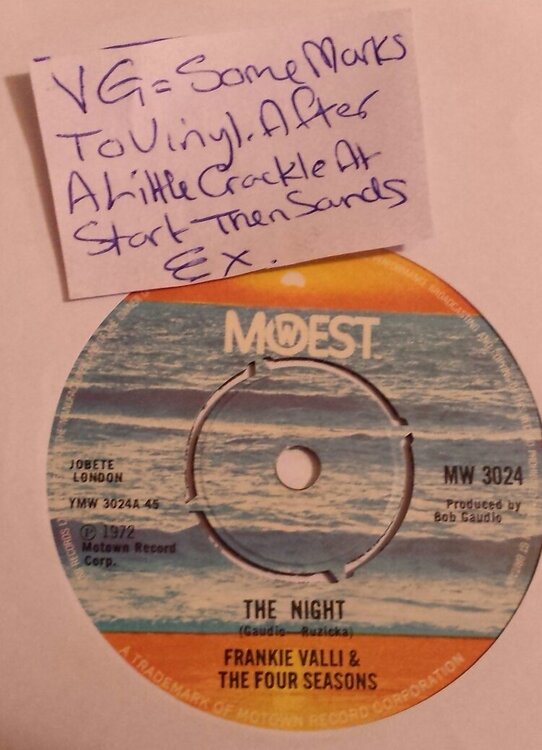 VG = Some Marks
To Vinyl. After
A Little Crackle At
Start Then Sands
EX.
MOWEST
JOBETE
LONDON
YMW 3024A 45
℗ 1972
Motown Record
Corp.
MW 3024
Produced by
Bob Gaudio
THE NIGHT
(Gaudio—Ruzicka)
FRANKIE VALLI &
THE FOUR SEASONS
A TRADEMARK OF MOTOWN RECORD CORPORATION